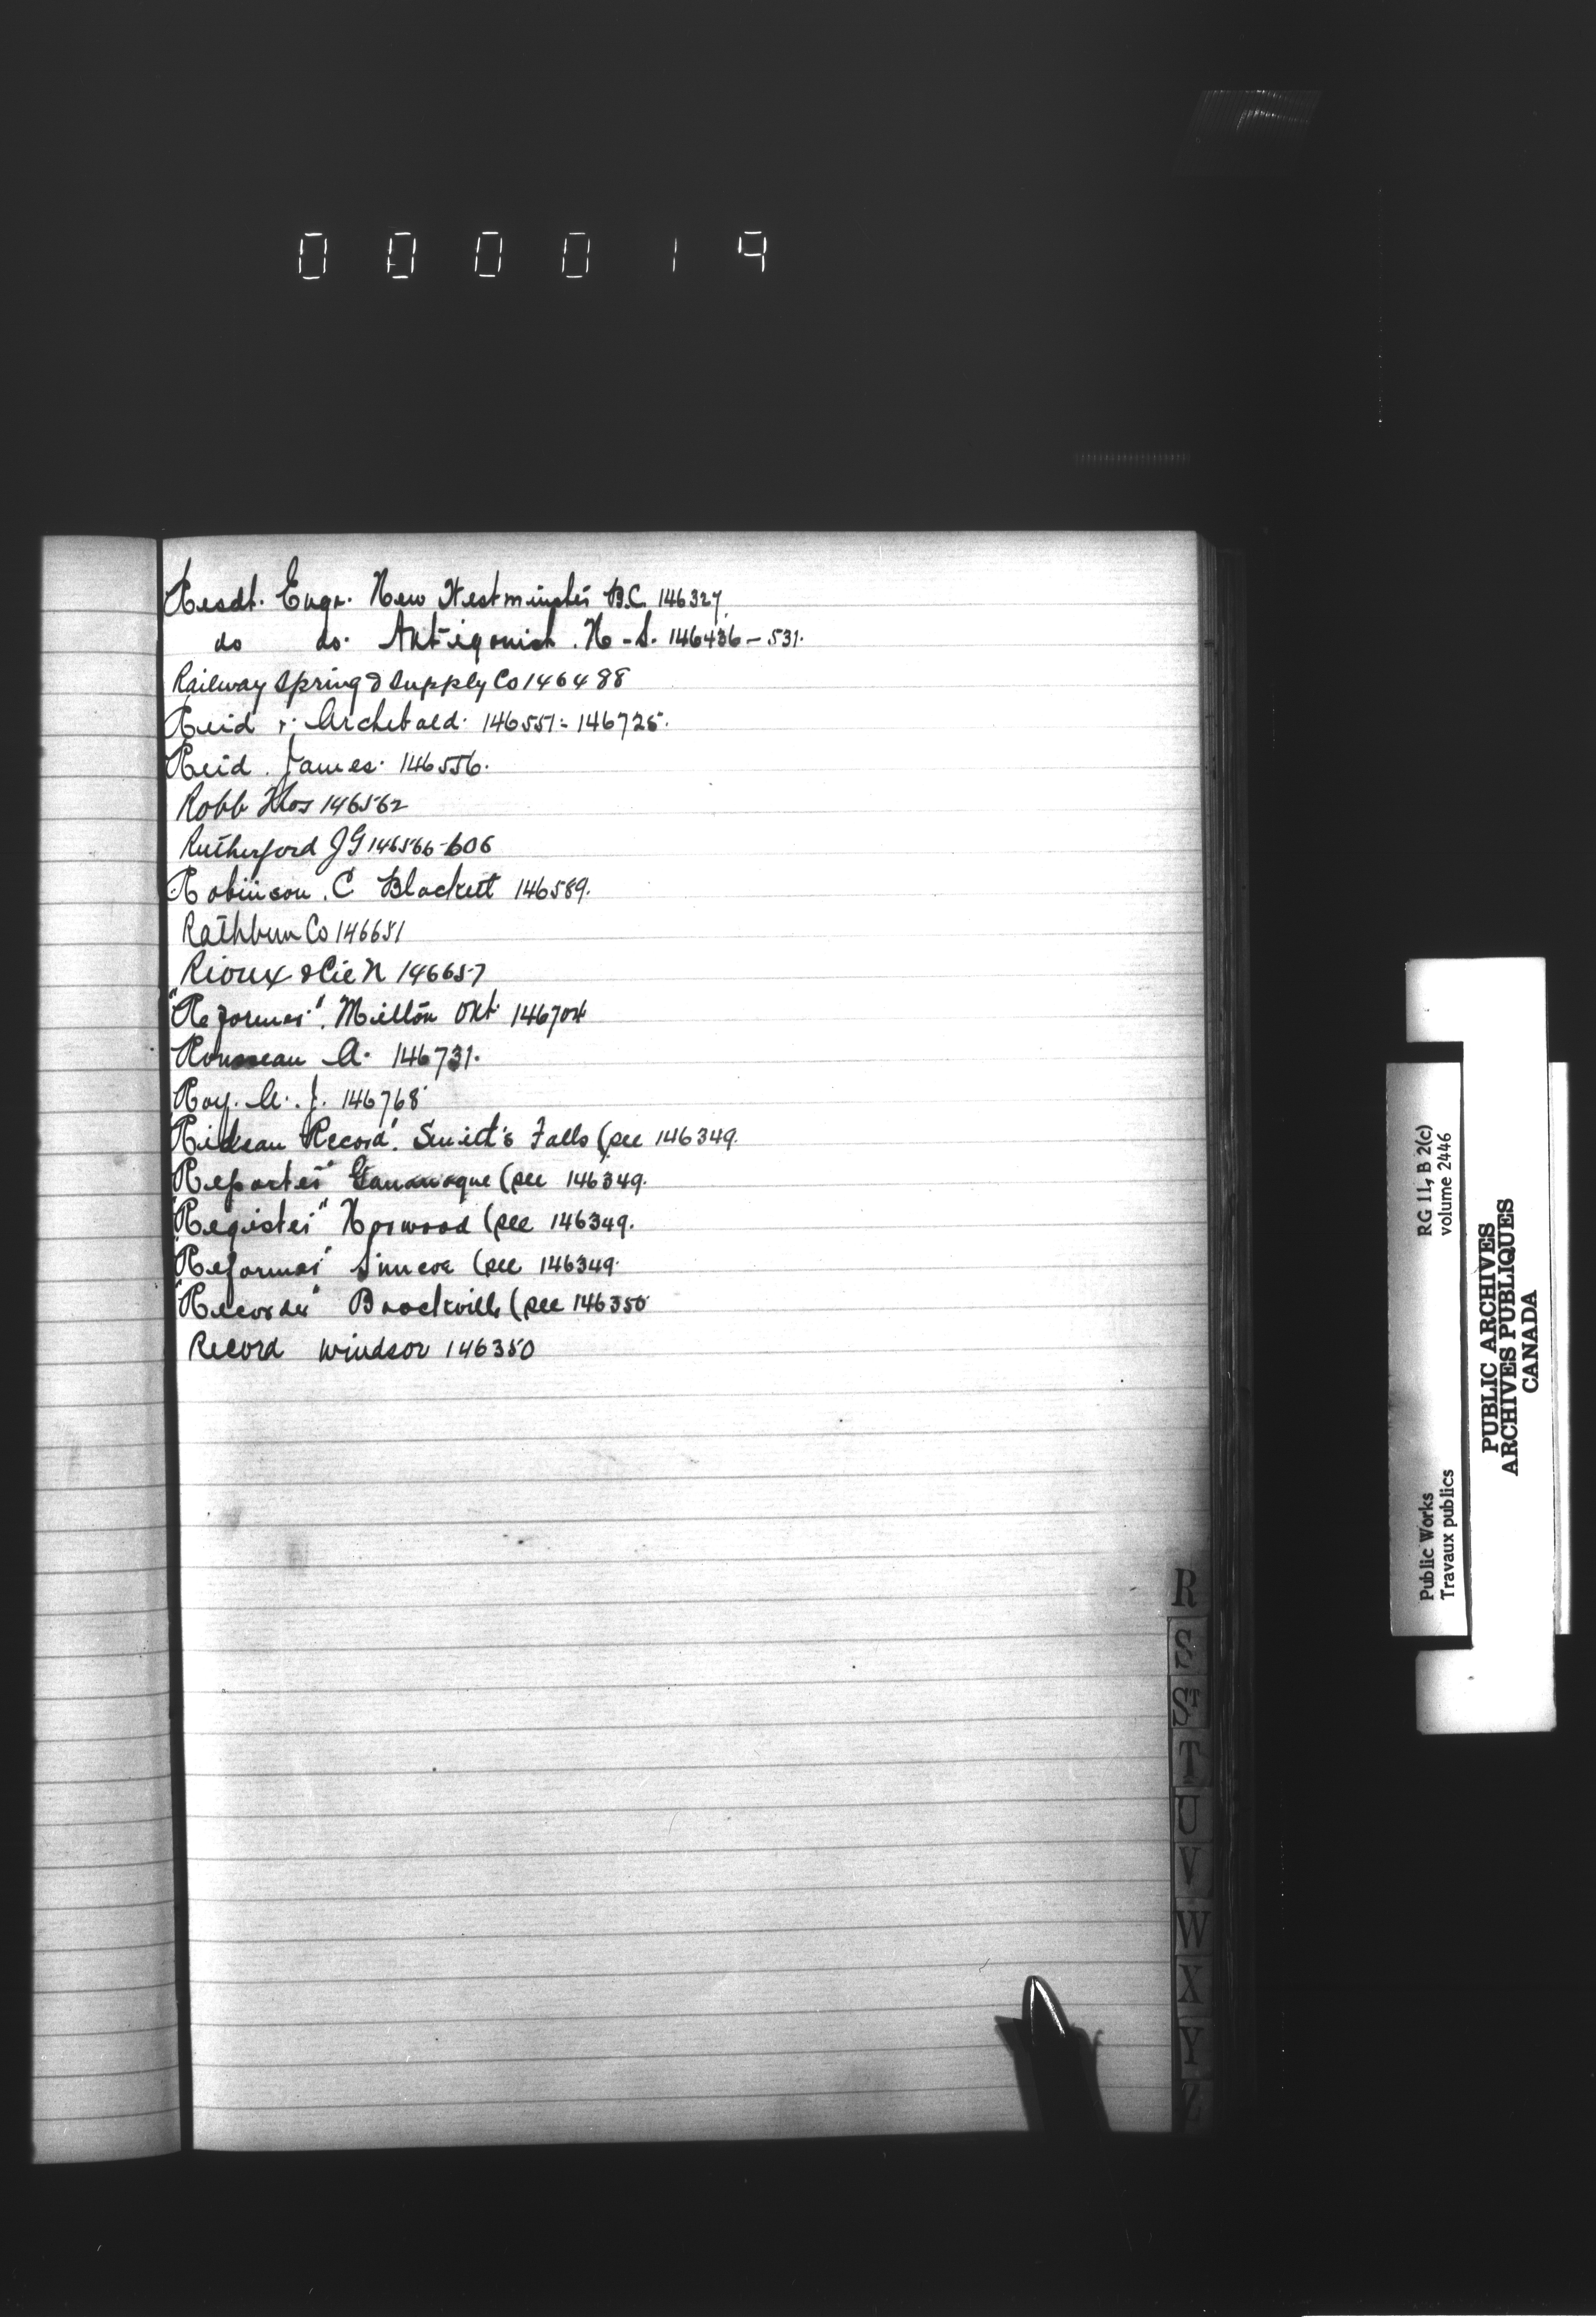 000019
Resdt. Engr. New Westminster B.C. 146327
do do. Antigonish. N-S. 146436-531.
Railway Spring & Supply Co 146488
Reid & Archibald. 146551-146725.
Reid. James. 146556.
Robb Thos 146562
Rutherford JG 146566-606
Robinson. C Blackett 146589.
Rathbun Co 146651
Rioux & Cie N 146657
"Reformer". Milton Ont 146704
Rousseau A. 146731.
Roy. A. J. 146768
Rideau Record". Smith's Falls (see 146349.
Reporter" Gananoque (see 146349.
"Register" Norwood (see 146349.
"Reformer" Simcoe (see 146349.
"Recorder" Brockville (see 146350
Record Windsor 146350
R
S
ST
T
U
V
W
X
Y
Z
Public Works RG 11, B 2(c)
Travaux publics volume 2446
PUBLIC ARCHIVES
ARCHIVES PUBLIQUES
CANADA